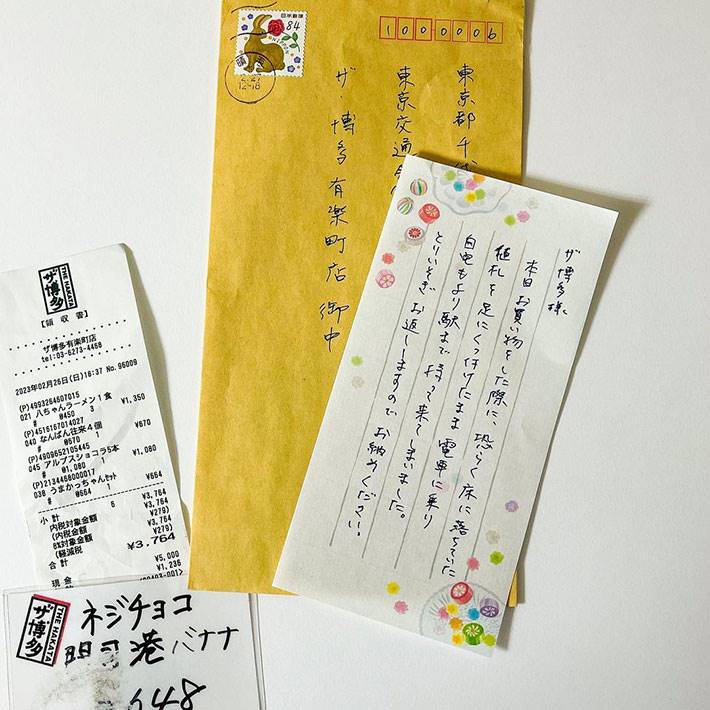 日本郵便
84
NIPPON
晴海
12-18
1000006
東京都千代
東京交通
ザ・博多有楽町店 御中
ザ博多様
本日お買い物をした際に、恐らく床に落ちていた
値札を足にくっ付けたまま電車に乗り
自宅もより駅まで持って来てしまいました。
とりいそぎお返ししますのでお納めください。
THE HAKATA
ザ・博多
【領収書】
ザ博多有楽町店
tel:03-6273-4458
2023年02月26日(日)16:37 No.96009
(P)4993264607015
021 八ちゃんラーメン1食 ¥1,350
# @450 3
(P)4516167014027
040 なんばん往来4個 ¥670
# @670 1
(P)4909652105445
045 アルプスショコラ5本 ¥1,080
# @1,080 1
(P)2134468000017
038 うまかっちゃんセット ¥664
# @664 1
小計 6 ¥3,764
内税対象金額 ¥3,764
(内税金額 ¥279)
8%対象金額 ¥3,764
(軽減税 ¥279)
合計 ¥3,764
現金 ¥5,000
¥1,236
THE HAKATA
ザ・博多
ネジチョコ
門司港バナナ
648